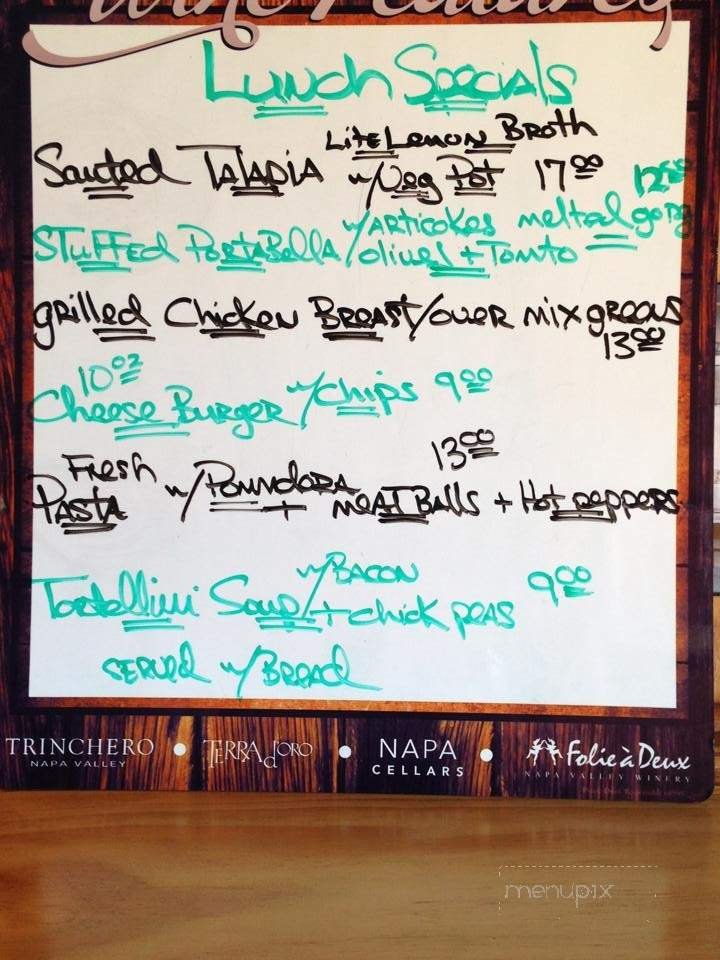 Wine Features
Lunch Specials
LITE Lemon Broth
Sauted TALAPIA w/Veg Pot 17.00
12.00
STUFFED PORTABella w/ARTICOKES melted gorg
olives + Tomto
grilled Chicken Breast/over mix greens
13.00
10 oz
Cheese Burger w/chips 9.00
13.00
Fresh
PASTA w/Pomodora + meAT Balls + Hot peppers
Tortellini Soup w/BACON 9.00
+ chick peas
SERVED w/ BREAD
TRINCHERO • TERRA d'ORO • NAPA • Folie à Deux
NAPA VALLEY CELLARS NAPA VALLEY WINERY
menupix